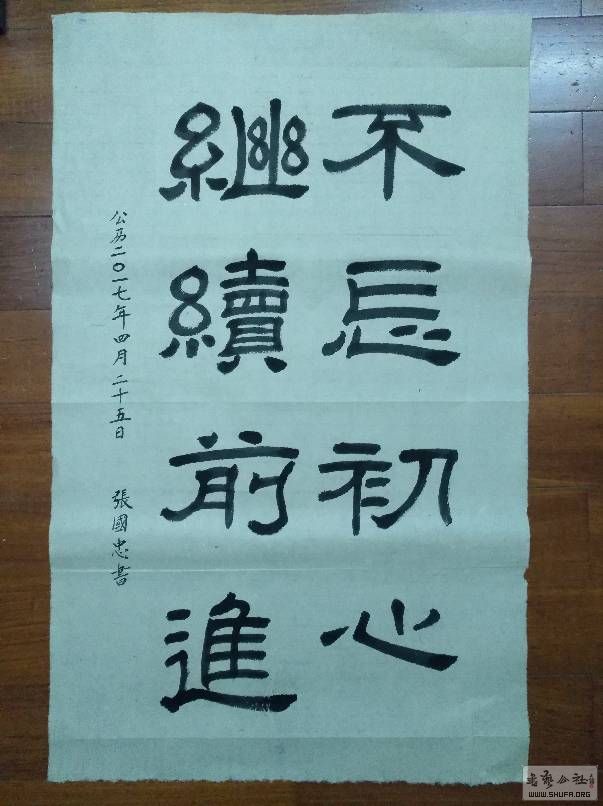 不忘初心
繼續前進
公历二〇一七年四月二十五日 張國忠書
书艺公社
WWW.SHUFA.ORG